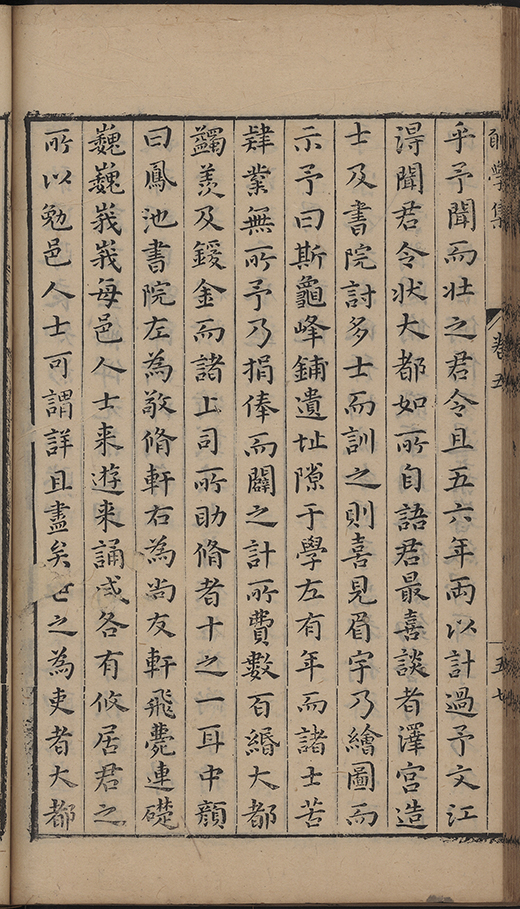 學集
卷五
五七
乎予聞而壯之君令且五六年兩以計過予文江
淂聞君令狀大都如所自語君最喜談者澤宮造
士及書院討多士而訓之則喜見眉宇乃繪圖而
示予曰斯龜峰鋪遺址隙于學左有年而諸士苦
肄業無所予乃捐俸而闢之計所費數百緡大都
蠲羨及鍰金而諸上司所助脩者十之一耳中顏
曰鳳池書院左為敬脩軒右為尚友軒飛甍連礎
巍巍峩峩每邑人士来遊来誦咸各有攸居君之
所以勉邑人士可謂詳且盡矣世之為吏者大都